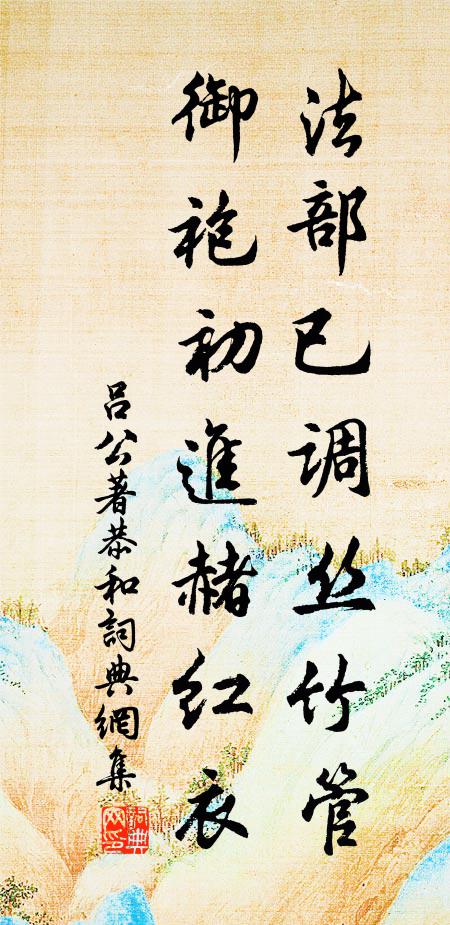 法部已调丝竹管
御袍初進赭红衣
吕公著恭和詞典網集
詞典网印